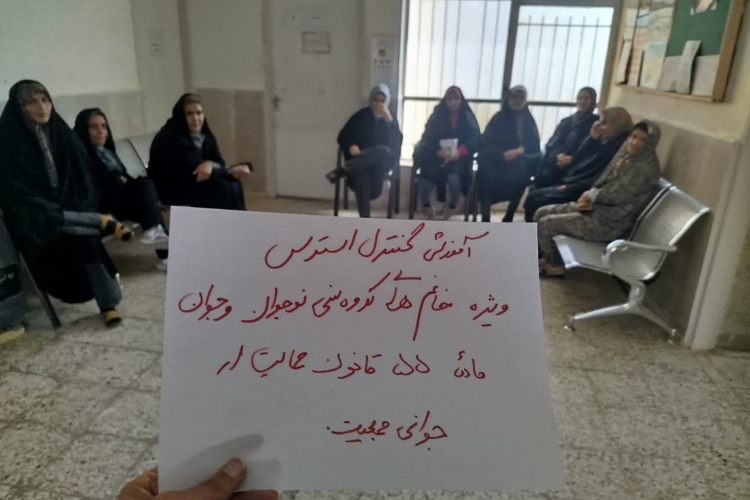 آموزش کنترل استرس
ویژه خانم های گروه سنی نوجوان و جوان
ماده ۵۵ قانون حمایت از
جوانی جمعیت.